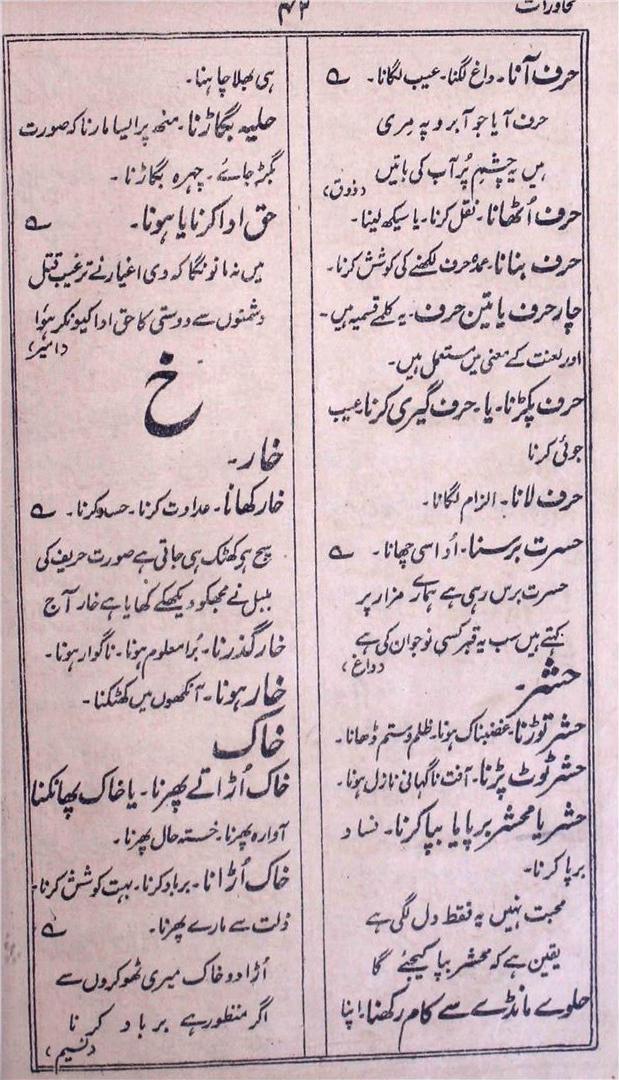 محاورات
۴۲
حرف آنا۔ داغ لگنا۔ عیب لگانا۔ ؎
حرف آیا جو آبرو پہ مِری
ہیں یہ چشمِ پُر آب کی باتیں
(ذوق)
حرف اُٹھانا۔ نقل کرنا۔ یا سیکھ لینا۔
حرف بنانا۔ عمدہ حرف لکھنے کی کوشش کرنا۔
چار حرف یا تین حرف۔ یہ کلمے قسمیہ ہیں۔
اور لعنت کے معنی میں مستعمل ہیں۔
حرف پکڑنا۔ یا۔ حرف گیری کرنا۔ عیب
جوئی کرنا
حرف لانا۔ الزام لگانا۔
حسرت برسنا۔ اُداسی چھانا۔ ؎
حسرت برس رہی ہے ہمارے مزار پر
کہتے ہیں سب یہ قبر کسی نوجوان کی ہے
(داغ)
حشر۔
حشر توڑنا۔ غضبناک ہونا۔ ظلم و ستم ڈھانا۔
حشر ٹوٹ پڑنا۔ آفت ناگہانی نازل ہونا۔
حشر یا محشر برپا یا بپا کرنا۔ فساد
برپا کرنا۔
محبت نہیں یہ فقط دل لگی ہے
یقین ہے کہ محشر بپا کیجئے گا
حلوے مانڈے سے کام رکھنا۔ اپنا
ہی بھلا چاہنا۔
حلیہ بگاڑنا۔ منھ پر ایسا مارنا کہ صورت
بگڑ جائے۔ چہرہ بگاڑنا۔
حق ادا کرنا یا ہونا۔ ؎
میں نہ مانونگا کہ دی اغیار نے ترغیب قتل
دشمنوں سے دوستی کا حق ادا کیونکر ہوا
(امیر)
خ
خار۔
خار کھانا۔ عداوت کرنا۔ حسد کرنا۔ ؎
سچ ہو کھٹک ہی جاتی ہے صورت حریف کی
بلبل نے مجھکو دیکھکے کھایا ہے خار آج
خار گذرنا۔ بُرا معلوم ہونا۔ ناگوار ہونا۔
خار ہونا۔ آنکھوں میں کھٹکنا۔
خاک
خاک اُڑاتے پھرنا۔ یا خاک پھانکنا
آوارہ پھرنا۔ خستہ حال پھرنا۔
خاک اُڑانا۔ برباد کرنا۔ بہت کوشش کرنا۔
ذلت سے مارے پھرنا۔ ؎
اُڑا دو خاک میری ٹھوکروں سے
اگر منظور ہے برباد کرنا
(نسیم)